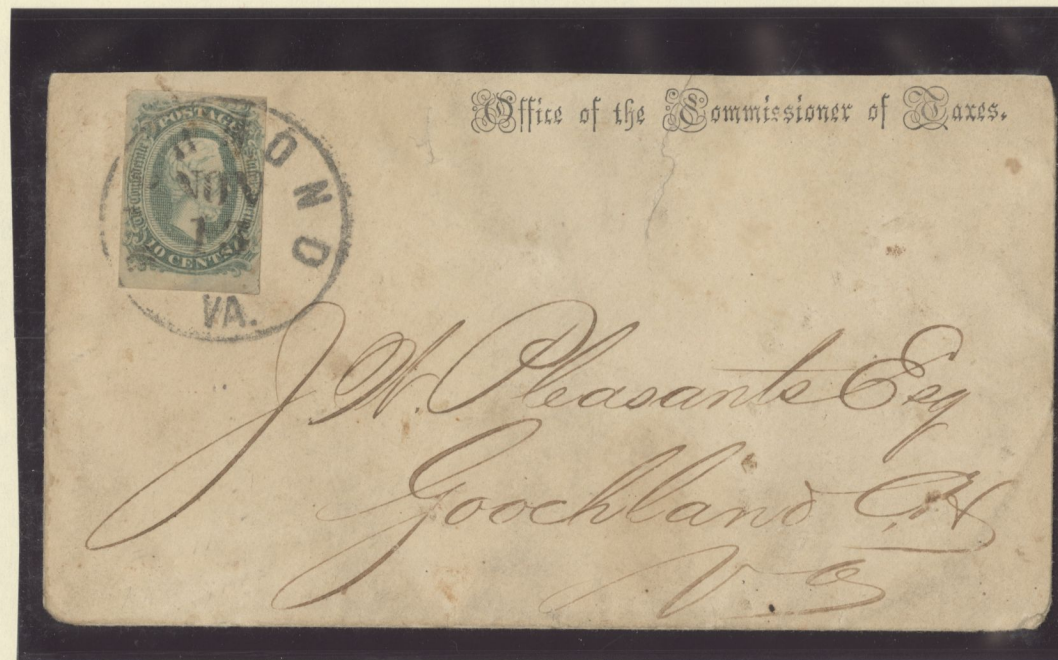 Office of the Commissioner of Taxes.
POSTAGE
MOND
NOV
TEN CENTS
VA.
J. W. Pleasants Esq
Goochland C.H
Va